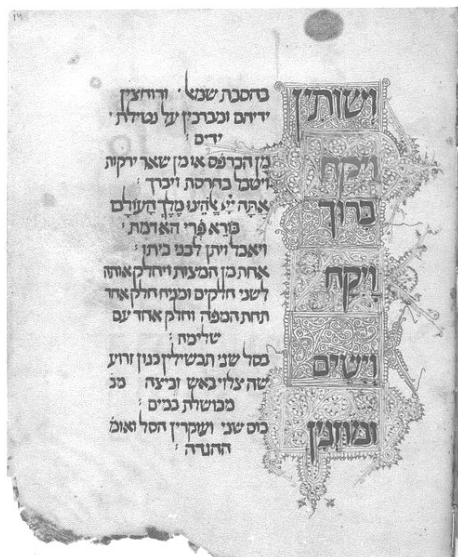 ושותין בהסבת שמאל ורוחצין
ידיהם ומברכין על נטילת
ידים :
ויקח מן הכרפס או מן שאר ירקות
ויטבל בחרסת ויברך :
ברוך אַתָּה יְיָ אֱלֹהֵינוּ מֶלֶךְ הָעוֹלָם
בּוֹרֵא פְּרִי הָאדמה
ויאכל ויתן לבני ביתו :
ויקח אחת מן המצות ויחלק אותה
לשני חלקים ומניח חלק אחד
תחת המפה וחלק אחד עם
שלימה :
וישים בסל שני תבשילין כגון זרוע
שה צלוי באש וביצה
מבושלת במים :
ומוזגין כוס שני ועוקרין הסל ואומ'
ההגדה :